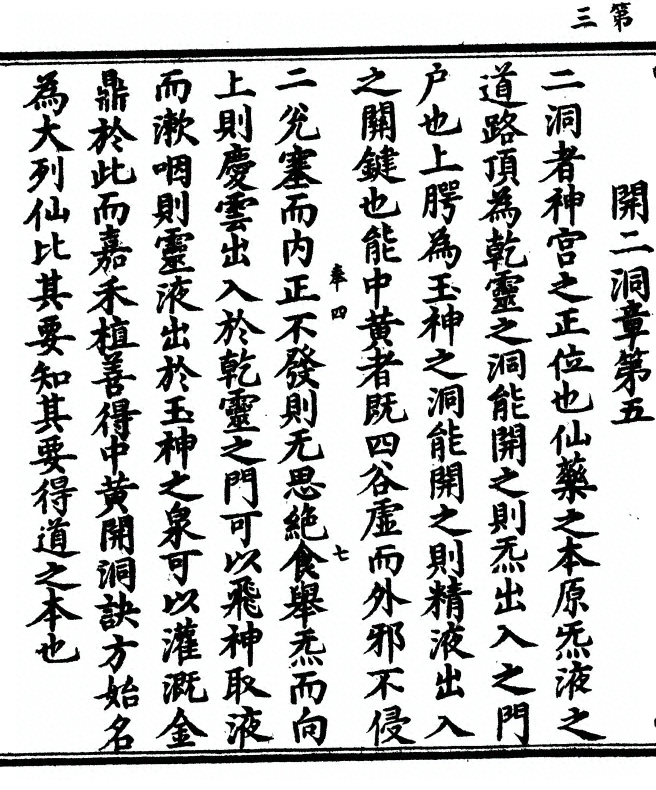 第
三
開二洞章第五
二洞者神宫之正位也仙藥之本原炁液之
道路頂為乾靈之洞能開之則炁出入之門
户也上腭為玉神之洞能開之則精液出入
之關鍵也能中黄者既四谷虛而外邪不侵
奉四
七
二兊塞而内正不發則无思絶食舉炁而向
上則慶雲出入於乾靈之門可以飛神取液
而漱咽則靈液出於玉神之泉可以灌溉金
鼎於此而嘉禾植善得中黄開洞訣方始名
為大列仙比其要知其要得道之本也